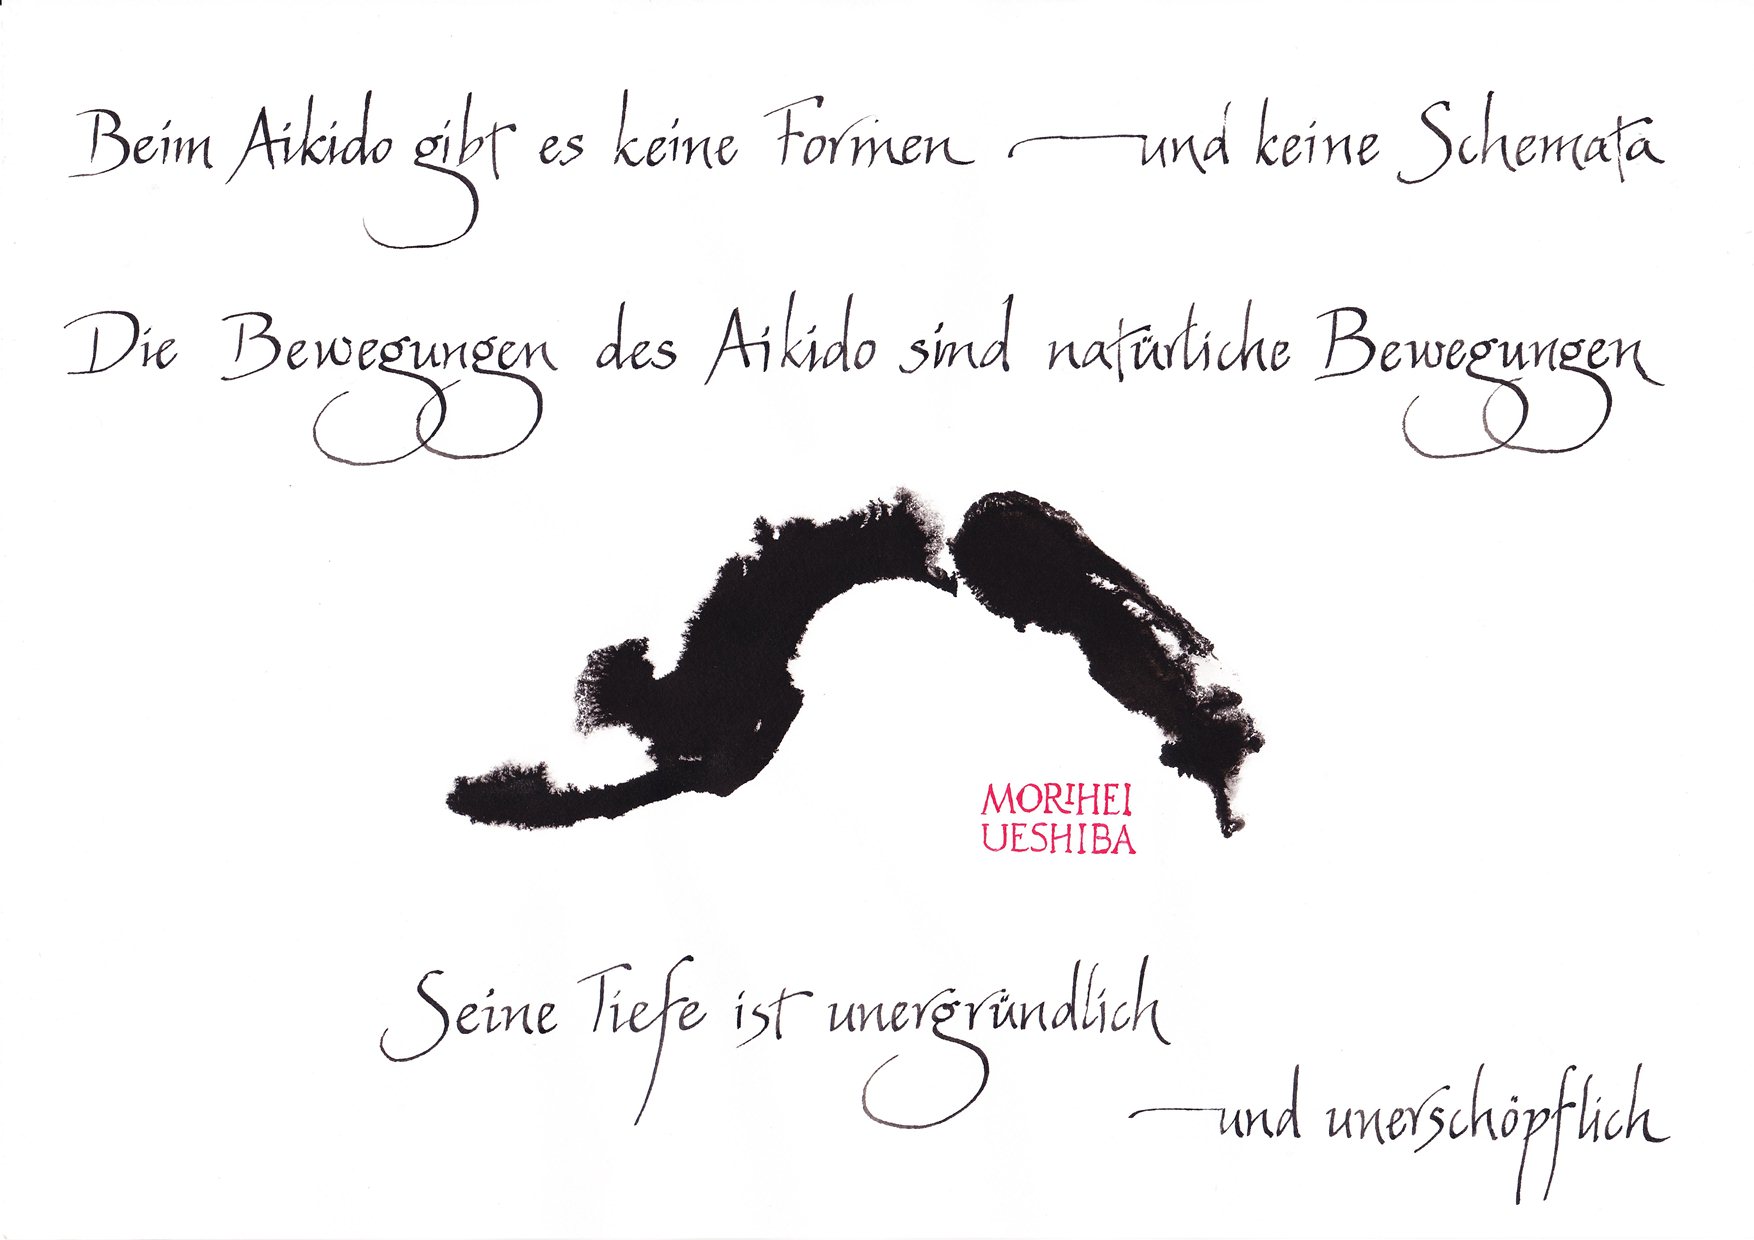 Beim Aikido gibt es keine Formen – und keine Schemata
Die Bewegungen des Aikido sind natürliche Bewegungen
MORIHEI
UESHIBA
Seine Tiefe ist unergründlich
– und unerschöpflich